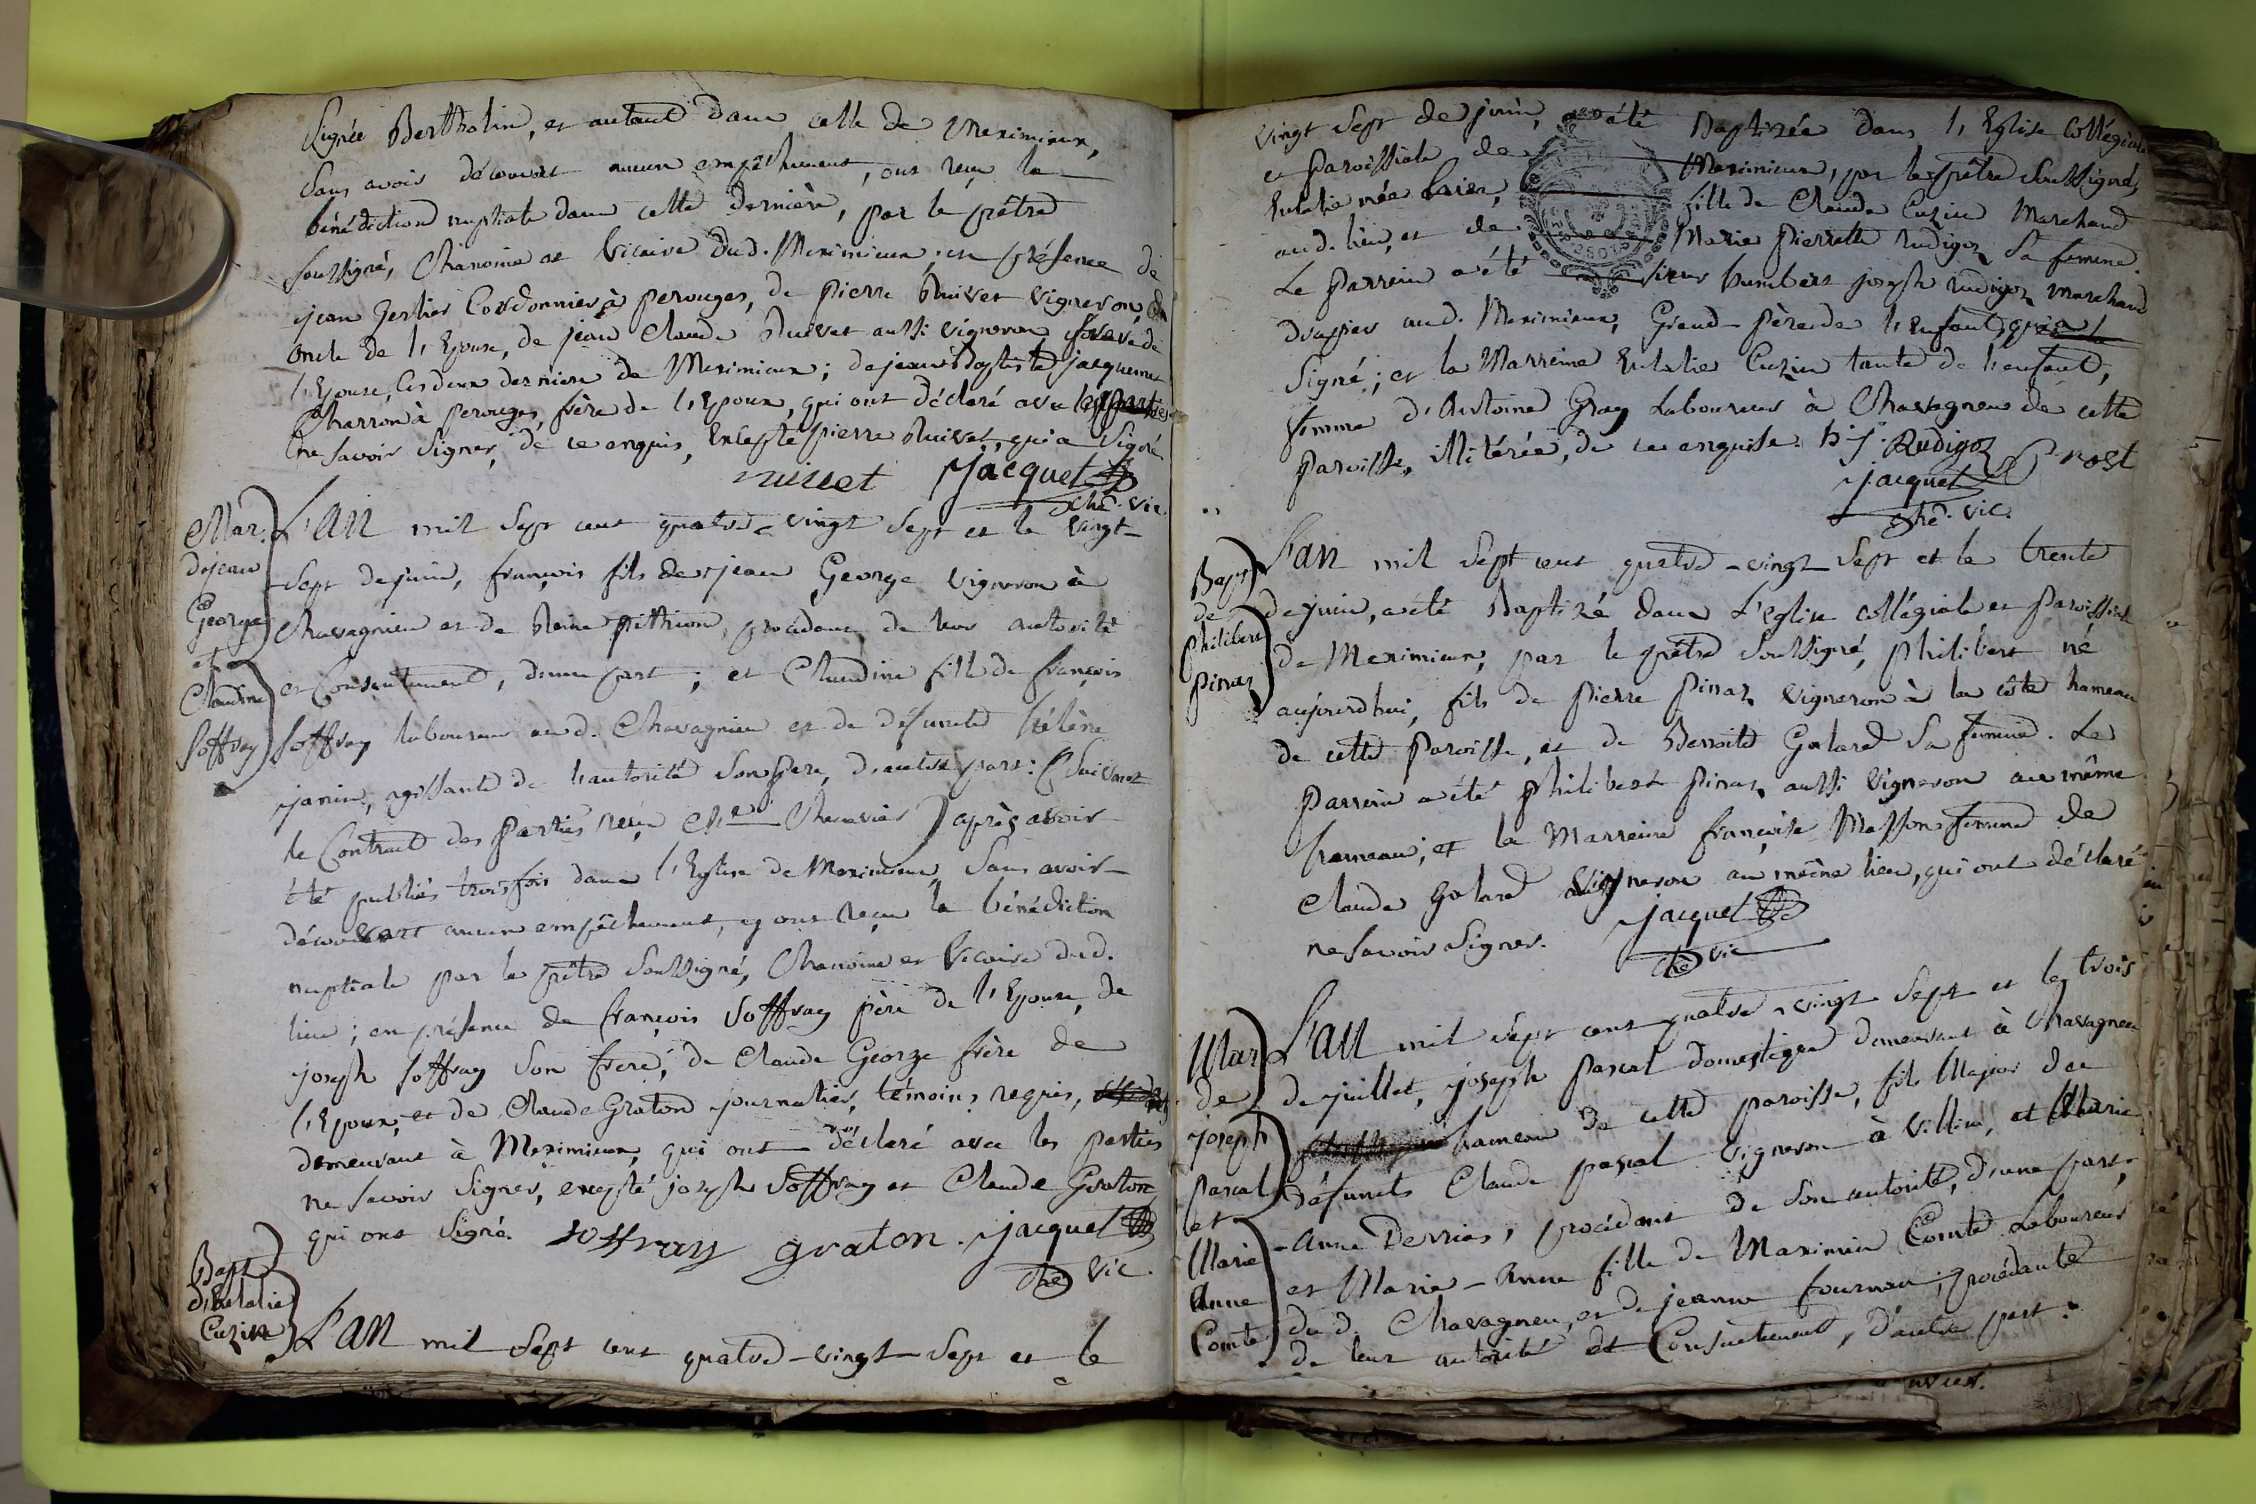 Signée Bertholin, et autant dans celle de Meximieux,
sans avoir découvert aucun empêchement, ont reçu la
bénédiction nuptiale dans cette dernière, par le prêtre
soussigné, Chanoine et Vicaire dud. Meximieux; en présence de
jean Cordonnier à perouges, de pierre Ruivet vigneron,
oncle de l'Epouse, de jean Claude Ruivet aussi vigneron frere de
l'Epouse, les deux derniers de Meximieux; de jean Baptiste jacquemet
Charron à perouges, frère de l'Epoux, qui ont déclaré avec les parties
ne savoir signer, de ce enquis, Excepté pierre Ruivet, qui a signé
ruivet jacquet
che. vic.
Mar.
de jean
George
et
Claudine
Soffray
L'an mil sept cent quatre-vingt sept et le vingt-
sept de juin, françois fils de jean George vigneron à
Chavagnieu et de Reine pithion, procédant de leur autorité
et Consentement, d'une part; et Claudine fille de françois
Soffray laboureur aud. Chavagnieu et de défunte hélène
janin, agissante de l'autorité son pere, d'autre part: (suivant
le Contrat des parties reçu Me Chenevier) après avoir
été publiés trois fois dans l'Eglise de Meximieux, sans avoir
découvert aucun empêchement, y ont reçu la bénédiction
nuptiale par le prêtre soussigné, Chanoine et Vicaire dud.
lieu; en présence de françois Soffray père de l'Epouse, de
joseph Soffray son frere, de Claude George frère de
l'Epoux, et de Claude Graton journalier, témoins requis,
demeurant à Meximieux, qui ont déclaré avec les parties
ne savoir signer, excepté joseph Soffray et Claude Graton
qui ont signé. Soffray graton. jacquet
che vic.
Bapt
d'Eulalie
Cuzin
L'an mil sept cent quatre-vingt-sept et le
vingt sept de juin, a été Baptizée dans l'Eglise Collégiale
et paroissiale de Meximieux, par le prêtre soussigné,
Eulalie née hier, fille de Claude Cuzin Marchand
aud. lieu, et de Marie pierrette Rudigoz sa femme.
Le parrein a été sieur humbert joseph Rudigoz marchand
drapier aud. Meximieux, Grand-père de l'Enfant, qui a
signé; et la Marreine Eulalie Cuzin tante de l'enfant,
femme d'Antoine Gray Laboureur à Chavagneu de cette
paroisse, illitérée, de ce enquise. h. j. Rudigoz Prost
jacquet
che. vic.
Bapt
de
Philibert
pinaz
L'an mil sept cent quatre-vingt-sept et le trente
de juin, a été Baptizé dans L'église collégiale et paroissiale
de Meximieux, par le prêtre soussigné, philibert né
aujourd'hui, fils de pierre pinaz vigneron à la côte hameau
de cette paroisse, et de Benoite Golard sa femme. Le
parrein a été philibert pinaz aussi vigneron au même
hameau, et la Marreine françoise Masson femme de
Claude Golard vigneron au même lieu, qui ont déclaré
ne savoir signer. jacquet
che vic
Mar
de
joseph
pascal
et
Marie
Anne
Comte
L'an mil sept cent quatre-vingt sept et le trois
de juillet, joseph pascal domestique demeurant à Chavagneu
hameau de cette paroisse, fils Majeur de
défunts Claude pascal vigneron à Villieu, et Marie
-Anne Derrias, procédant de son autorité, d'une part,
et Marie-Anne fille de Maximin Comte Laboureur
dud. Chavagneu, et de jeanne fournan; procédante
de leur autorité et Consentement, d'autre part: